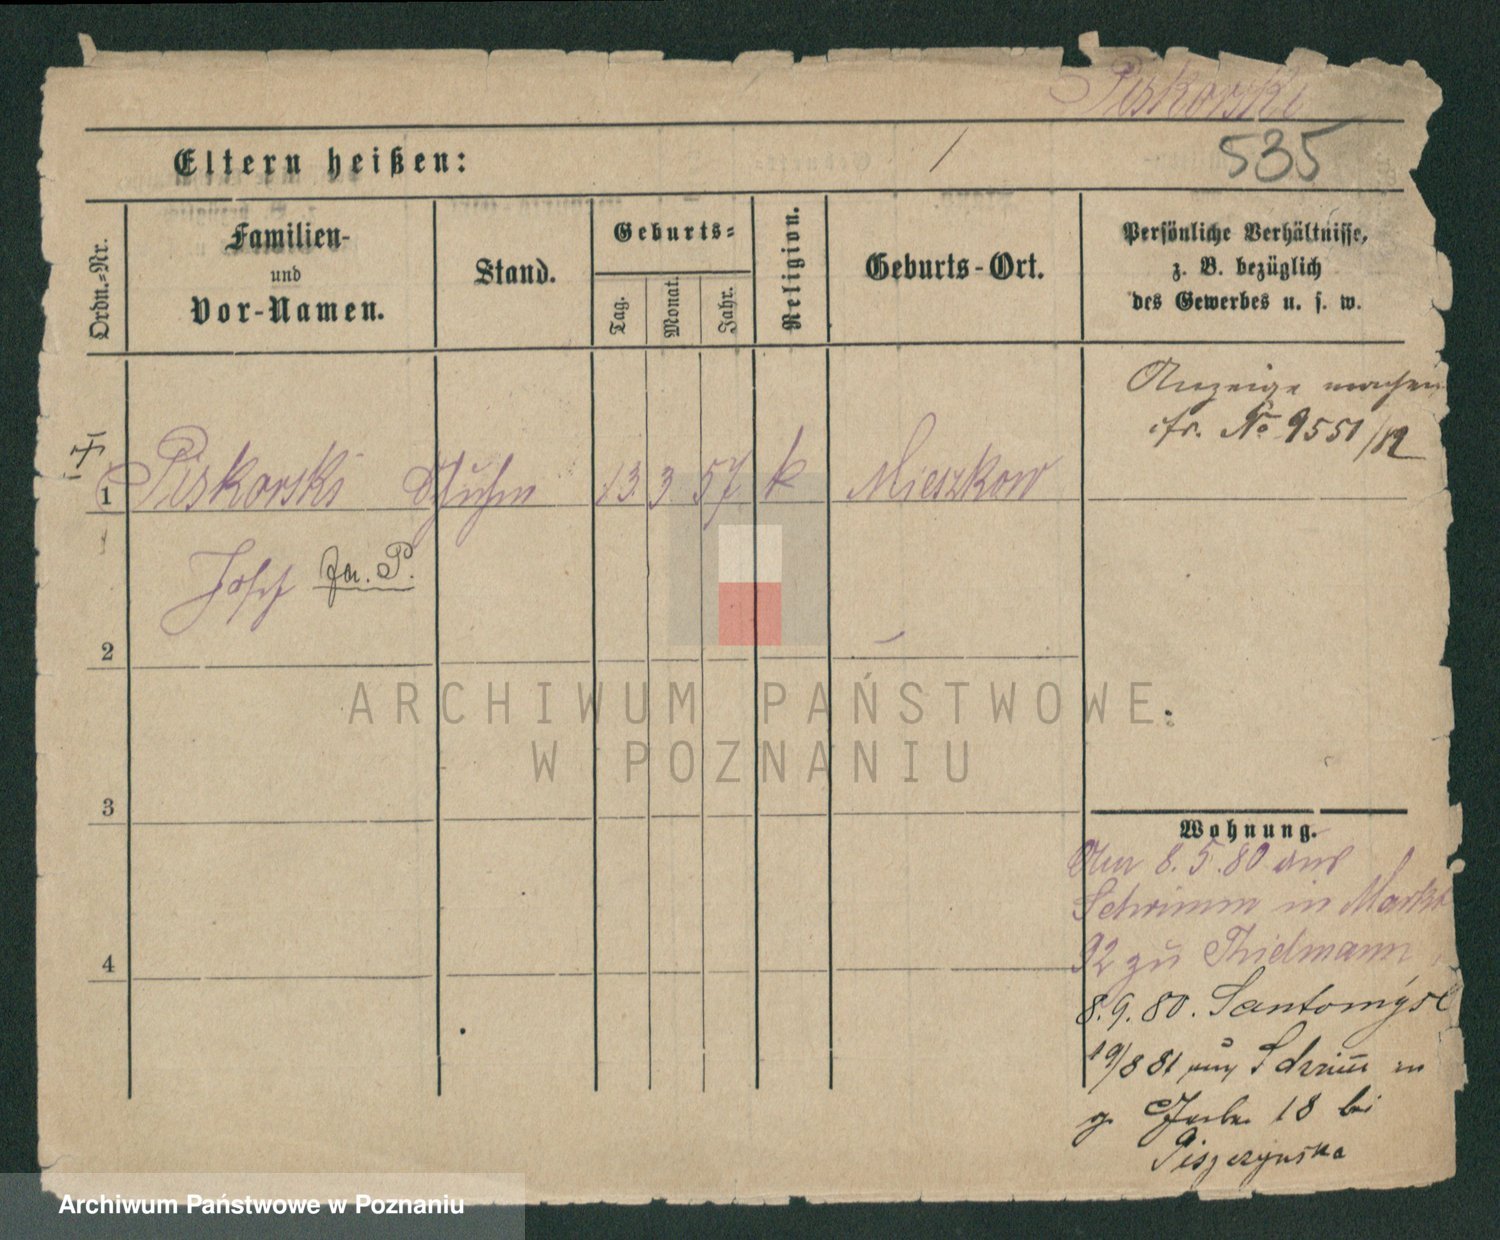 Piskorski
Eltern heißen:
535
Ordn.-Nr.
Familien-
und
Vor-Namen.
Stand.
Geburts-
Tag.
Monat.
Jahr.
Religion.
Geburts-Ort.
Persönliche Verhältnisse,
z. B. bezüglich
des Gewerbes u. s. w.
Anzeige machen
cfr. No 9551/82
1 Piskorski 13 3 57 k Mieszkow
Josef
2
ARCHIWUM PAŃSTWOWE
W POZNANIU
3
Wohnung.
8.5.80 aus
Schrimm in Markt
92 zu Thielmann
4
8.9.80. Santomysl
19/8 81 aus Schrimm
18 bei
Piszczynska
Archiwum Państwowe w Poznaniu